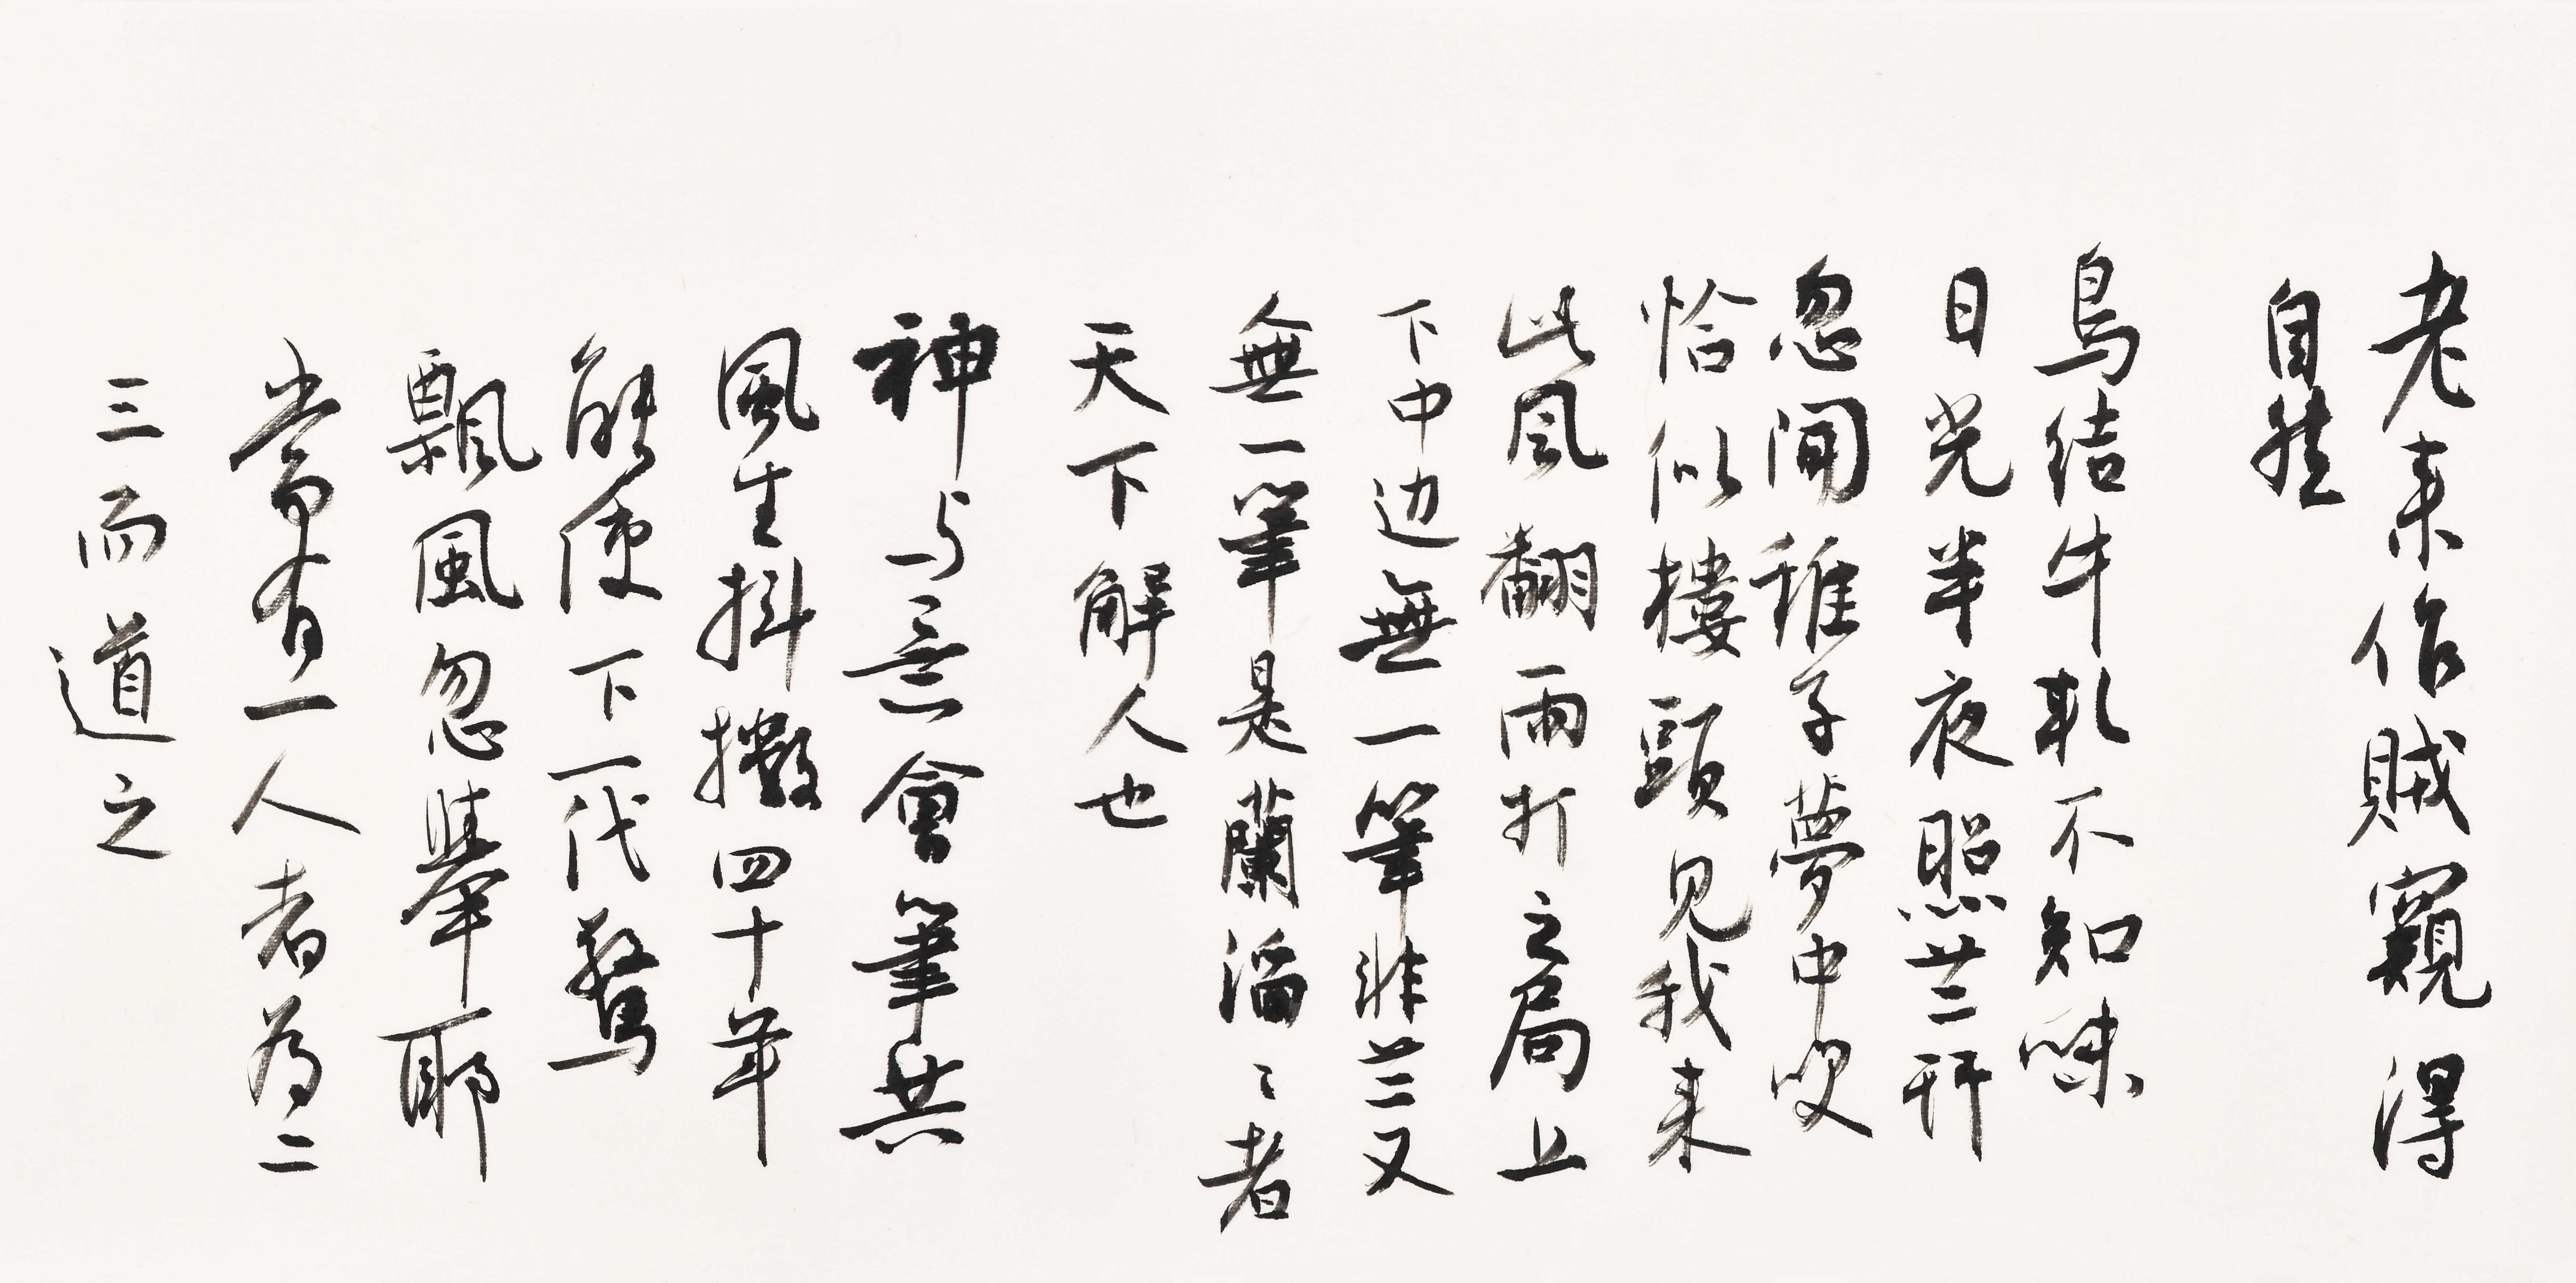 老来作賊窺得
自然
鳥結牛軋不知味
日光半夜照
忽聞稚子夢中
恰似樓頭見我来
此風翻雨打之局上
下中边無一筆非又
無一筆是蘭滔〻者
天下解人也
神与意會筆共
風生抖擻四十年
能使下一代驚
飄風忽舉耶
嘗有一人者為二
三而道之